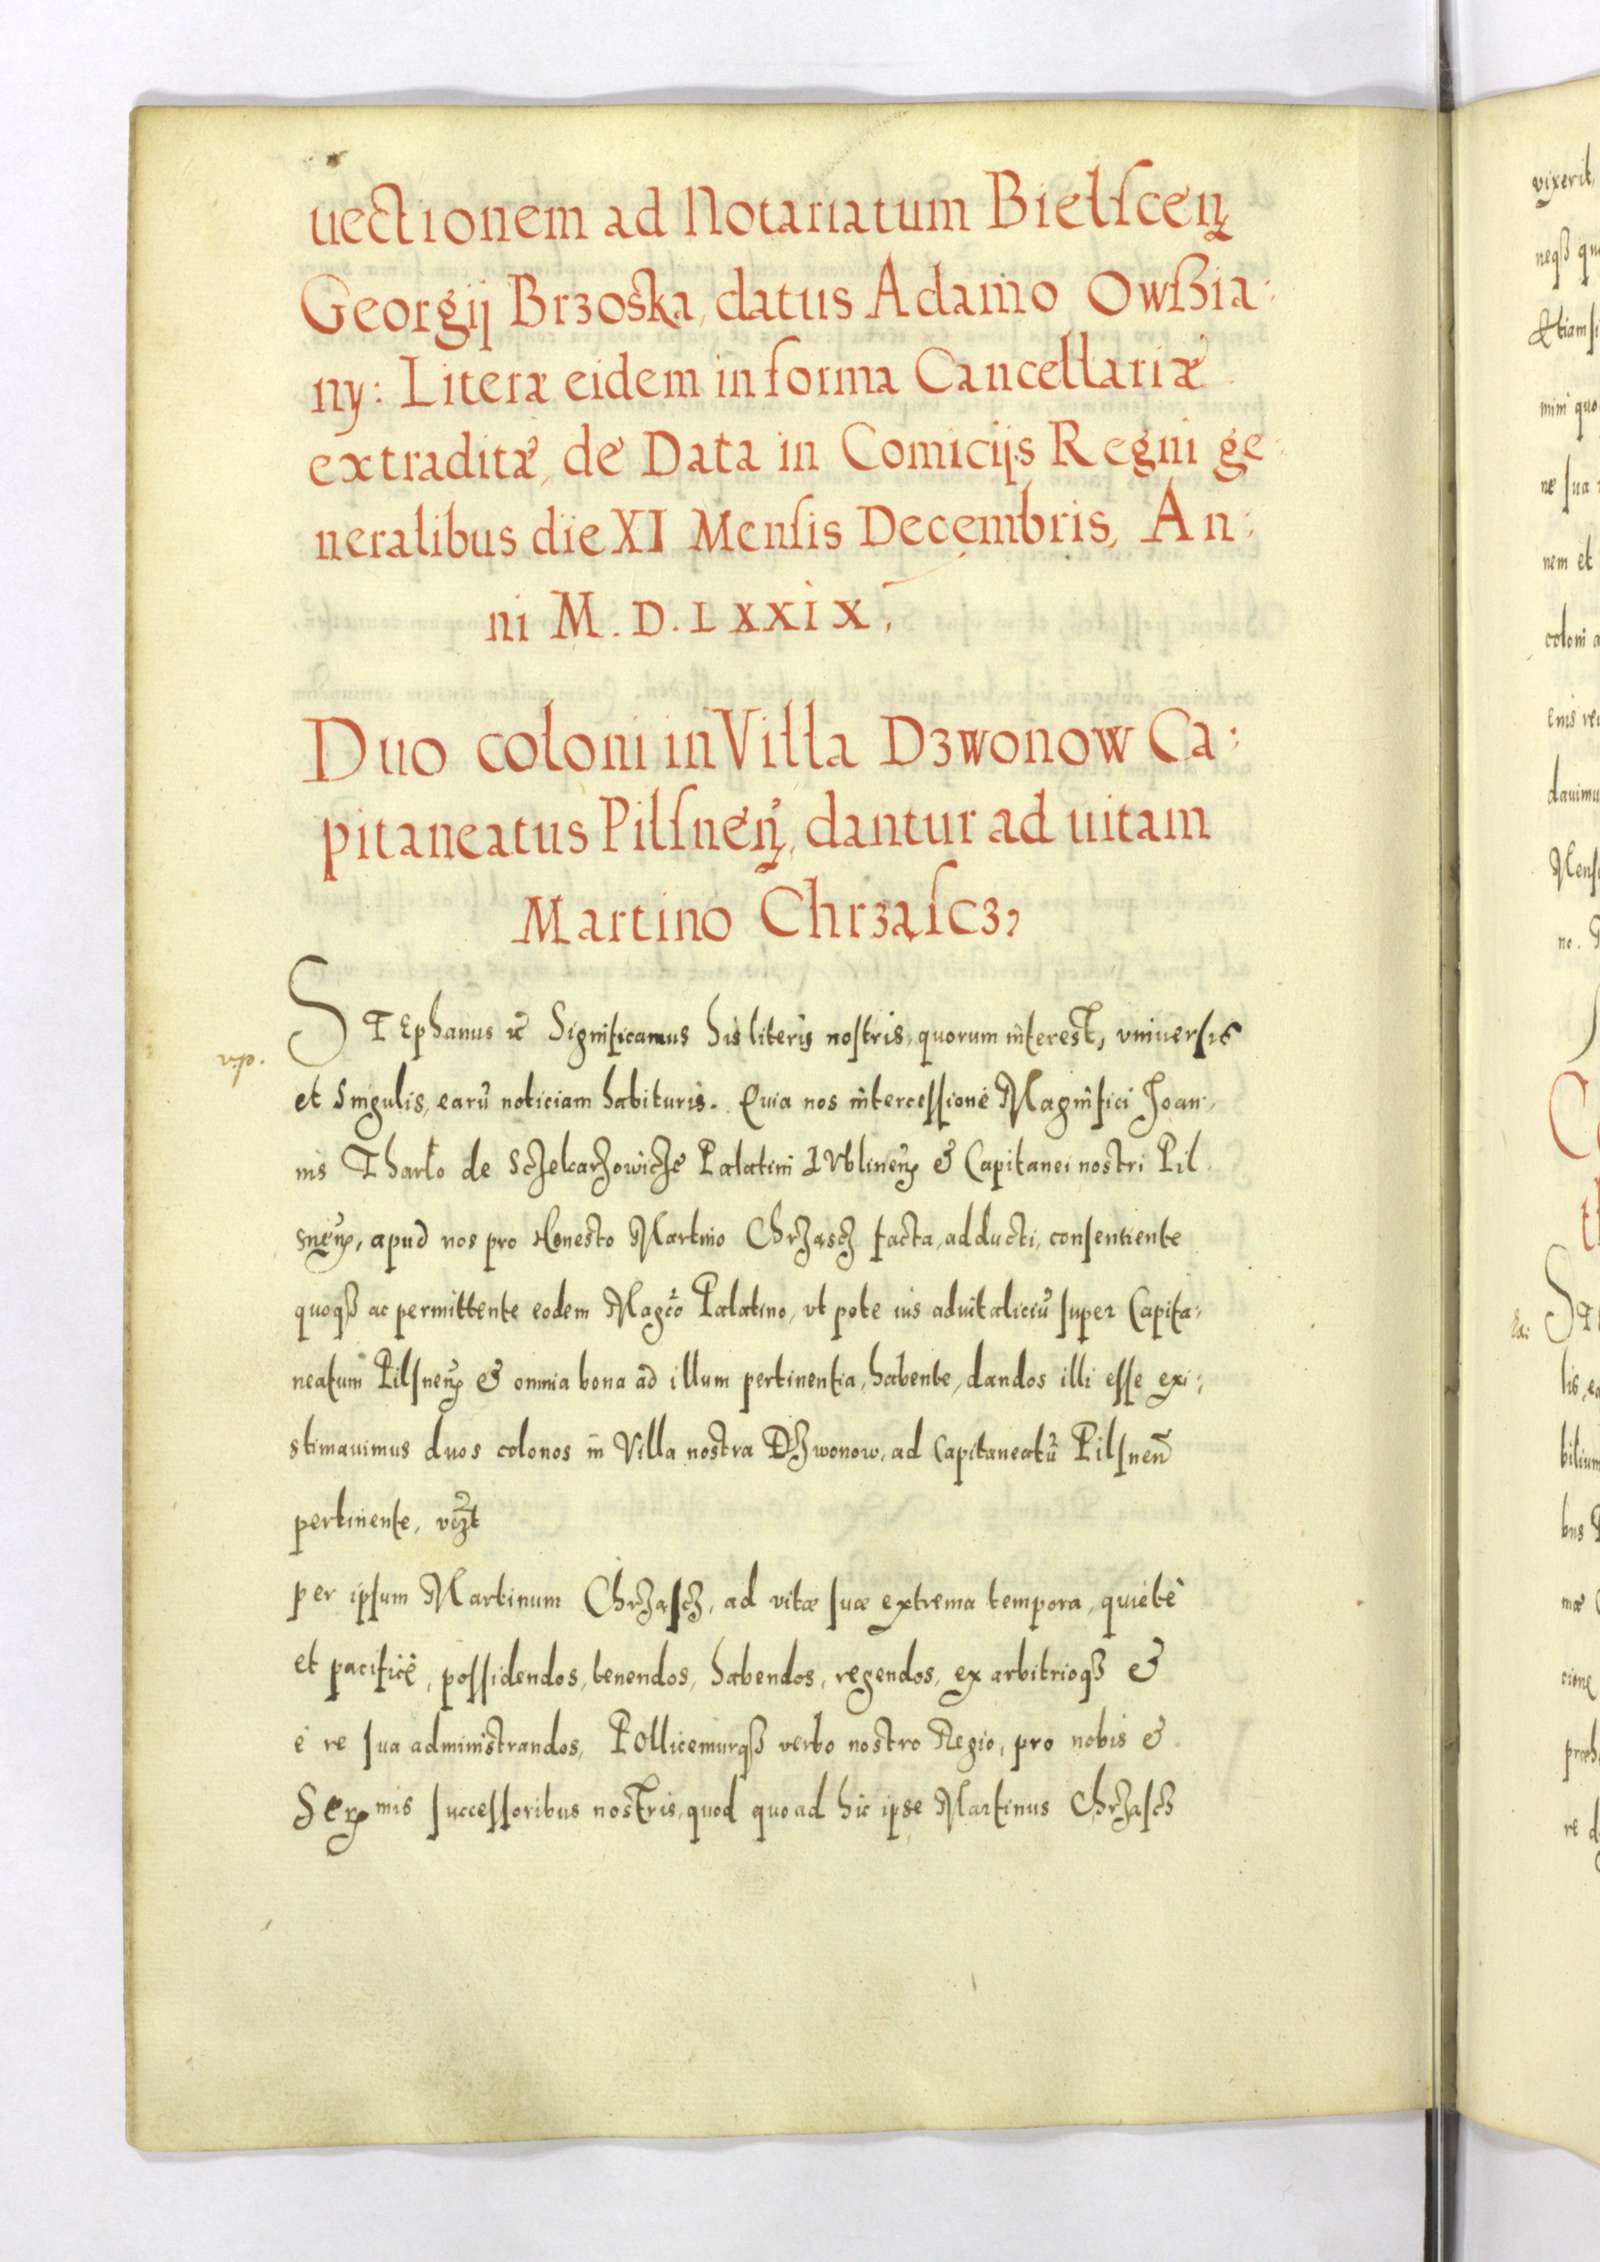 uectionem ad Notariatum Bielscen
Georgij Brzoska, datus Adamo Owßia:
ny: Literæ eidem in forma Cancellariæ
extraditæ, de Data in Comicijs Regni ge:
neralibus die XI Mensis Decembris, An:
ni M. D. LXXIX,
Duo coloni in Villa Dzwonow Ca:
pitaneatus Pilsnen, dantur ad uitam
Martino Chrząscz,
STEphanus &c Significamus his literis nostris, quorum interest, vniuersis
et singulis, earũ noticiam habituris. Quia nos intercessione Magnifici Joan:
nis Tharlo de Sczekarzowicze Palatini LVblinen & Capitanei nostri Pil
snen, apud nos pro Honesto Martino Chrząscz facta, adducti, consentiente
quoqȝ ac permittente eodem Magco Palatino, vt pote ius aduitaliciũ super Capita:
neatum Pilsnen & omnia bona ad illum pertinentia, habente, dandos illi esse exi:
stimauimus duos colonos in Villa nostra Dzwonow, ad Capitaneatũ Pilsnen̄
pertinente, vczt
per ipsum Martinum Chrząscz, ad vitæ suæ extrema tempora, quiete
et pacifice, possidendos, tenendos, habendos, regendos, ex arbitrioqȝ &
e re sua administrandos, POllicemurqȝ verbo nostro Regio, pro nobis &
Sermis successoribus nostris, quod quoad hic ipse Martinus Chrząscz
vixerit,
neqȝ
Etiamsi
coloni
nem et